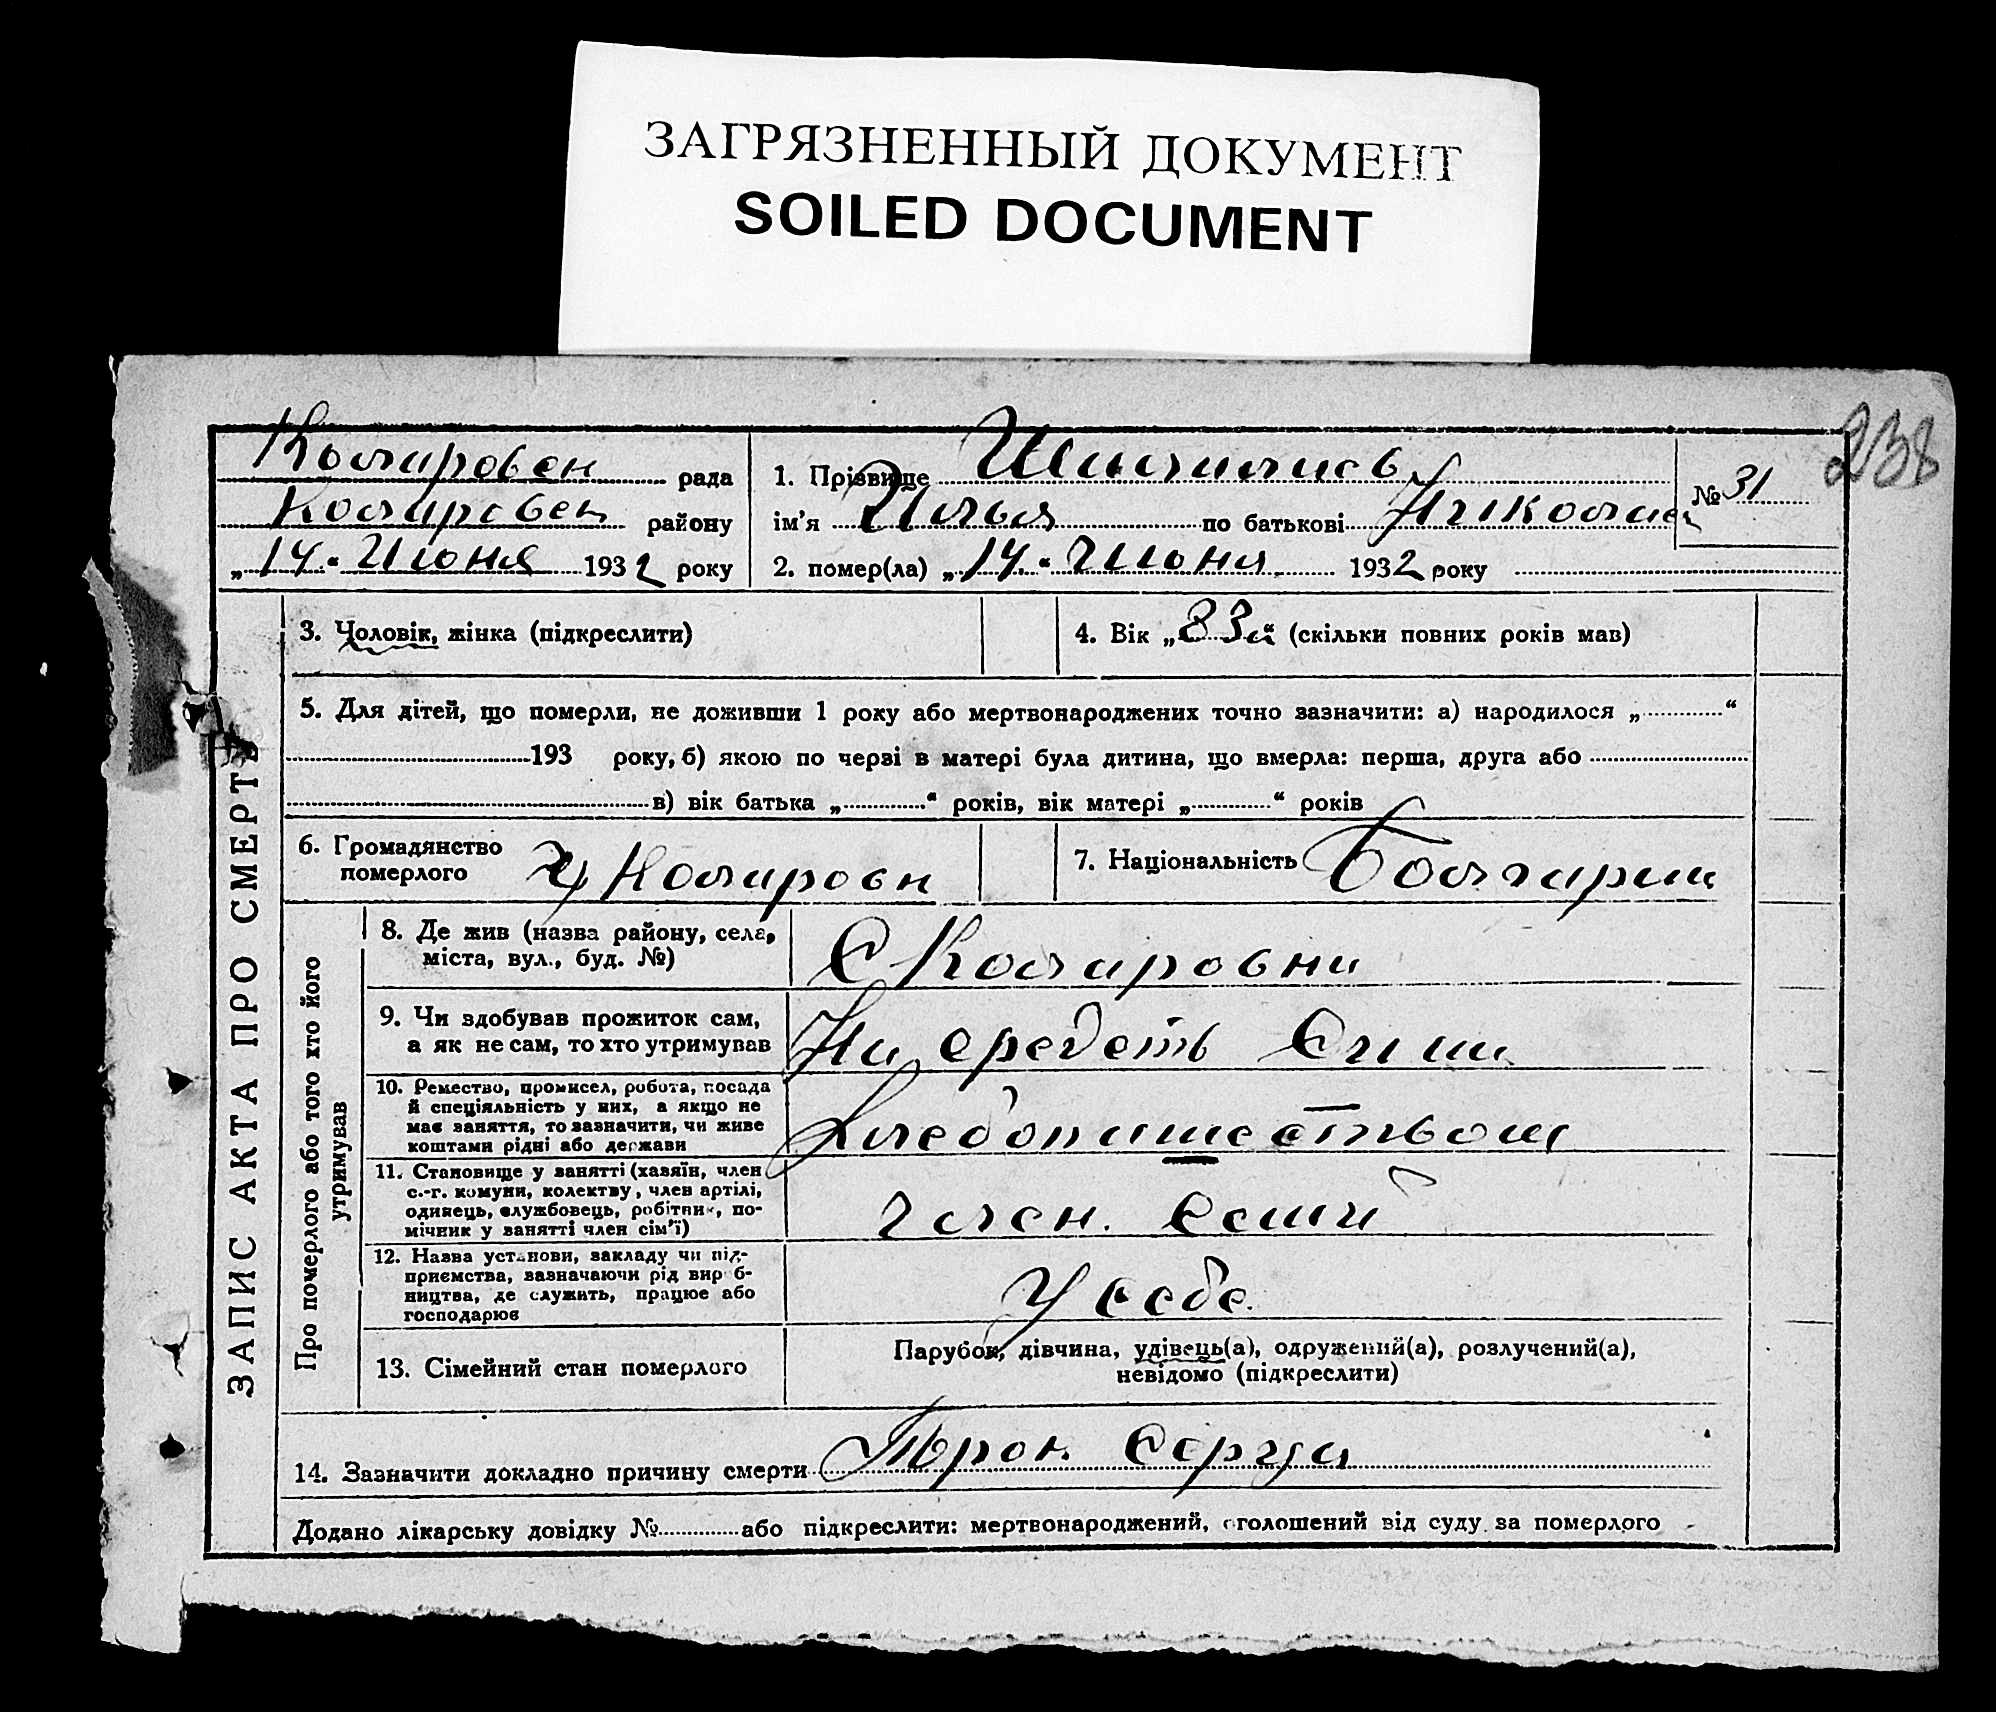 ЗАГРЯЗНЕННЫЙ ДОКУМЕНТ
SOILED DOCUMENT
238
Коларовск рада
Коларовск району
„14“ Июня 1932 року
1. Прізвище
ім'я Илья по батькові Николаев
№ 31
2. помер(ла) „14“ Июня 1932 року
ЗАПИС АКТА ПРО СМЕРТЬ
3. Чоловік, жінка (підкреслити)
4. Вік „83“ (скільки повних років мав)
5. Для дітей, що померли, не доживши 1 року або мертвонароджених точно зазначити: а) народилося „ “
193 року, б) якою по черзі в матері була дитина, що вмерла: перша, друга або
в) вік батька „ “ років, вік матері „ “ років
6. Громадянство
померлого
7. Національність Болгарин
Про померлого або того хто його
утримував
8. Де жив (назва району, села,
міста, вул., буд. №)
С Коларовки
9. Чи здобував прожиток сам,
а як не сам, то хто утримував
На средств Сина
10. Ремество, промисел, робота, посада
й спеціяльність у них, а якщо не
має заняття, то зазначити, чи живе
коштами рідні або держави
Хлебопашеством
11. Становище у занятті (хазяїн, член
с.-г. комуни, колектву, член артілі,
одинець, службовець, робітник, по-
мічник у занятті член сім'ї)
член. семи
12. Назва установи, закладу чи під-
приємства, зазначаючи рід вироб-
ництва, де служить, працює або
господарює
У себе.
13. Сімейний стан померлого
Парубок, дівчина, удівець(а), одружений(а), розлучений(а),
невідомо (підкреслити)
14. Зазначити докладно причину смерти Порок Серца
Додано лікарську довідку № або підкреслити: мертвонароджений, оголошений від суду за померлого